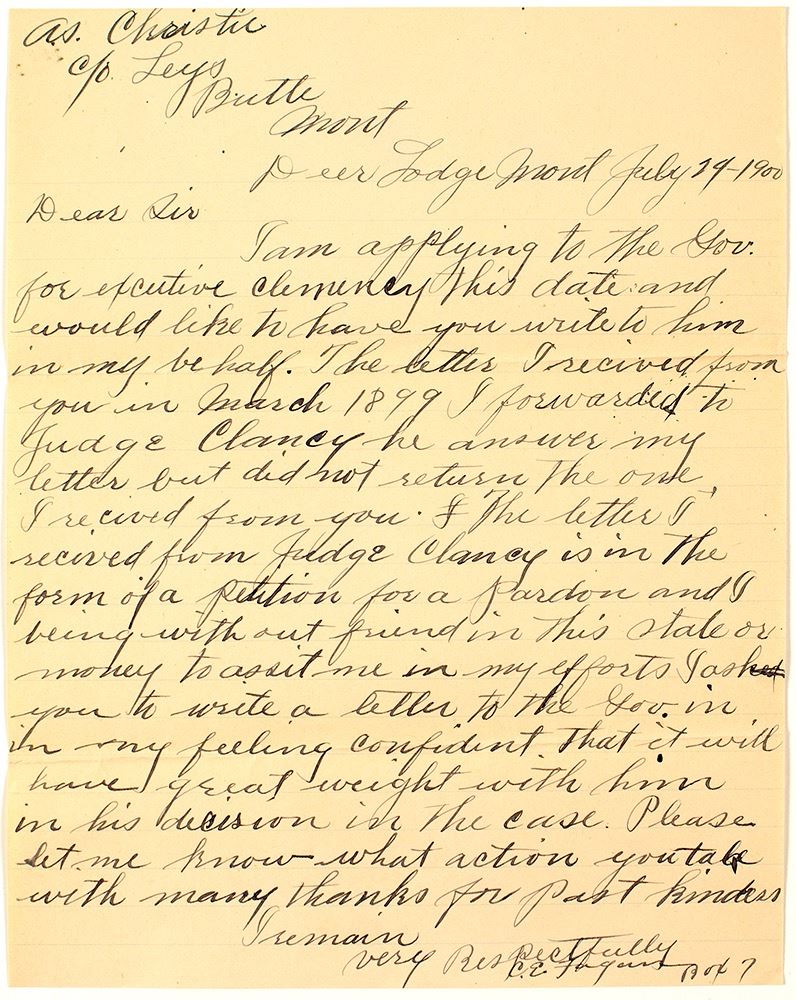 As. Christie
c/o. Leys
Butte
Mont
Deer Lodge Mont July 24-1900
Dear Sir
I am applying to the Gov.
for excutive clemency this date and
would like to have you write to him
in my behalf. The letter I recived from
you in March 1899 I forwarded to
Judge Clancy he answer my
letter but did not return the one
I recived from you. & The letter I
recived from Judge Clancy is in the
form of a petition for a Pardon and I
being with out friend in this state or
money to assit me in my efforts I ask
you to write a letter to the Gov. in
in my feeling confident that it will
have great weight with him
in his decision in the case. Please
let me know what action you take
with many thanks for past kindess
I remain
very Respectfully
C.E. Box 7